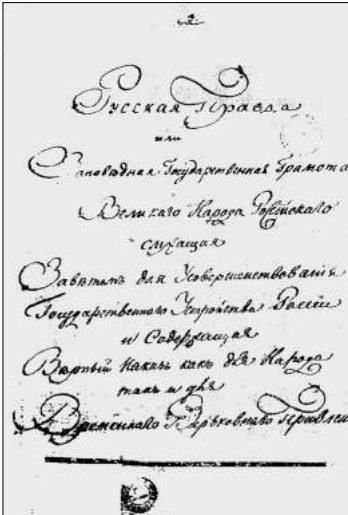 Русская Правда
или
Заповедная Государственная Грамота
Великаго Народа Россійскаго
служащая
Завѣтомъ для Усовершенствованія
Государственнаго Устройства Россіи
и Содержащая
Вѣрный Наказъ какъ для Народа
такъ и для
Временнаго Верьховнаго Правленія